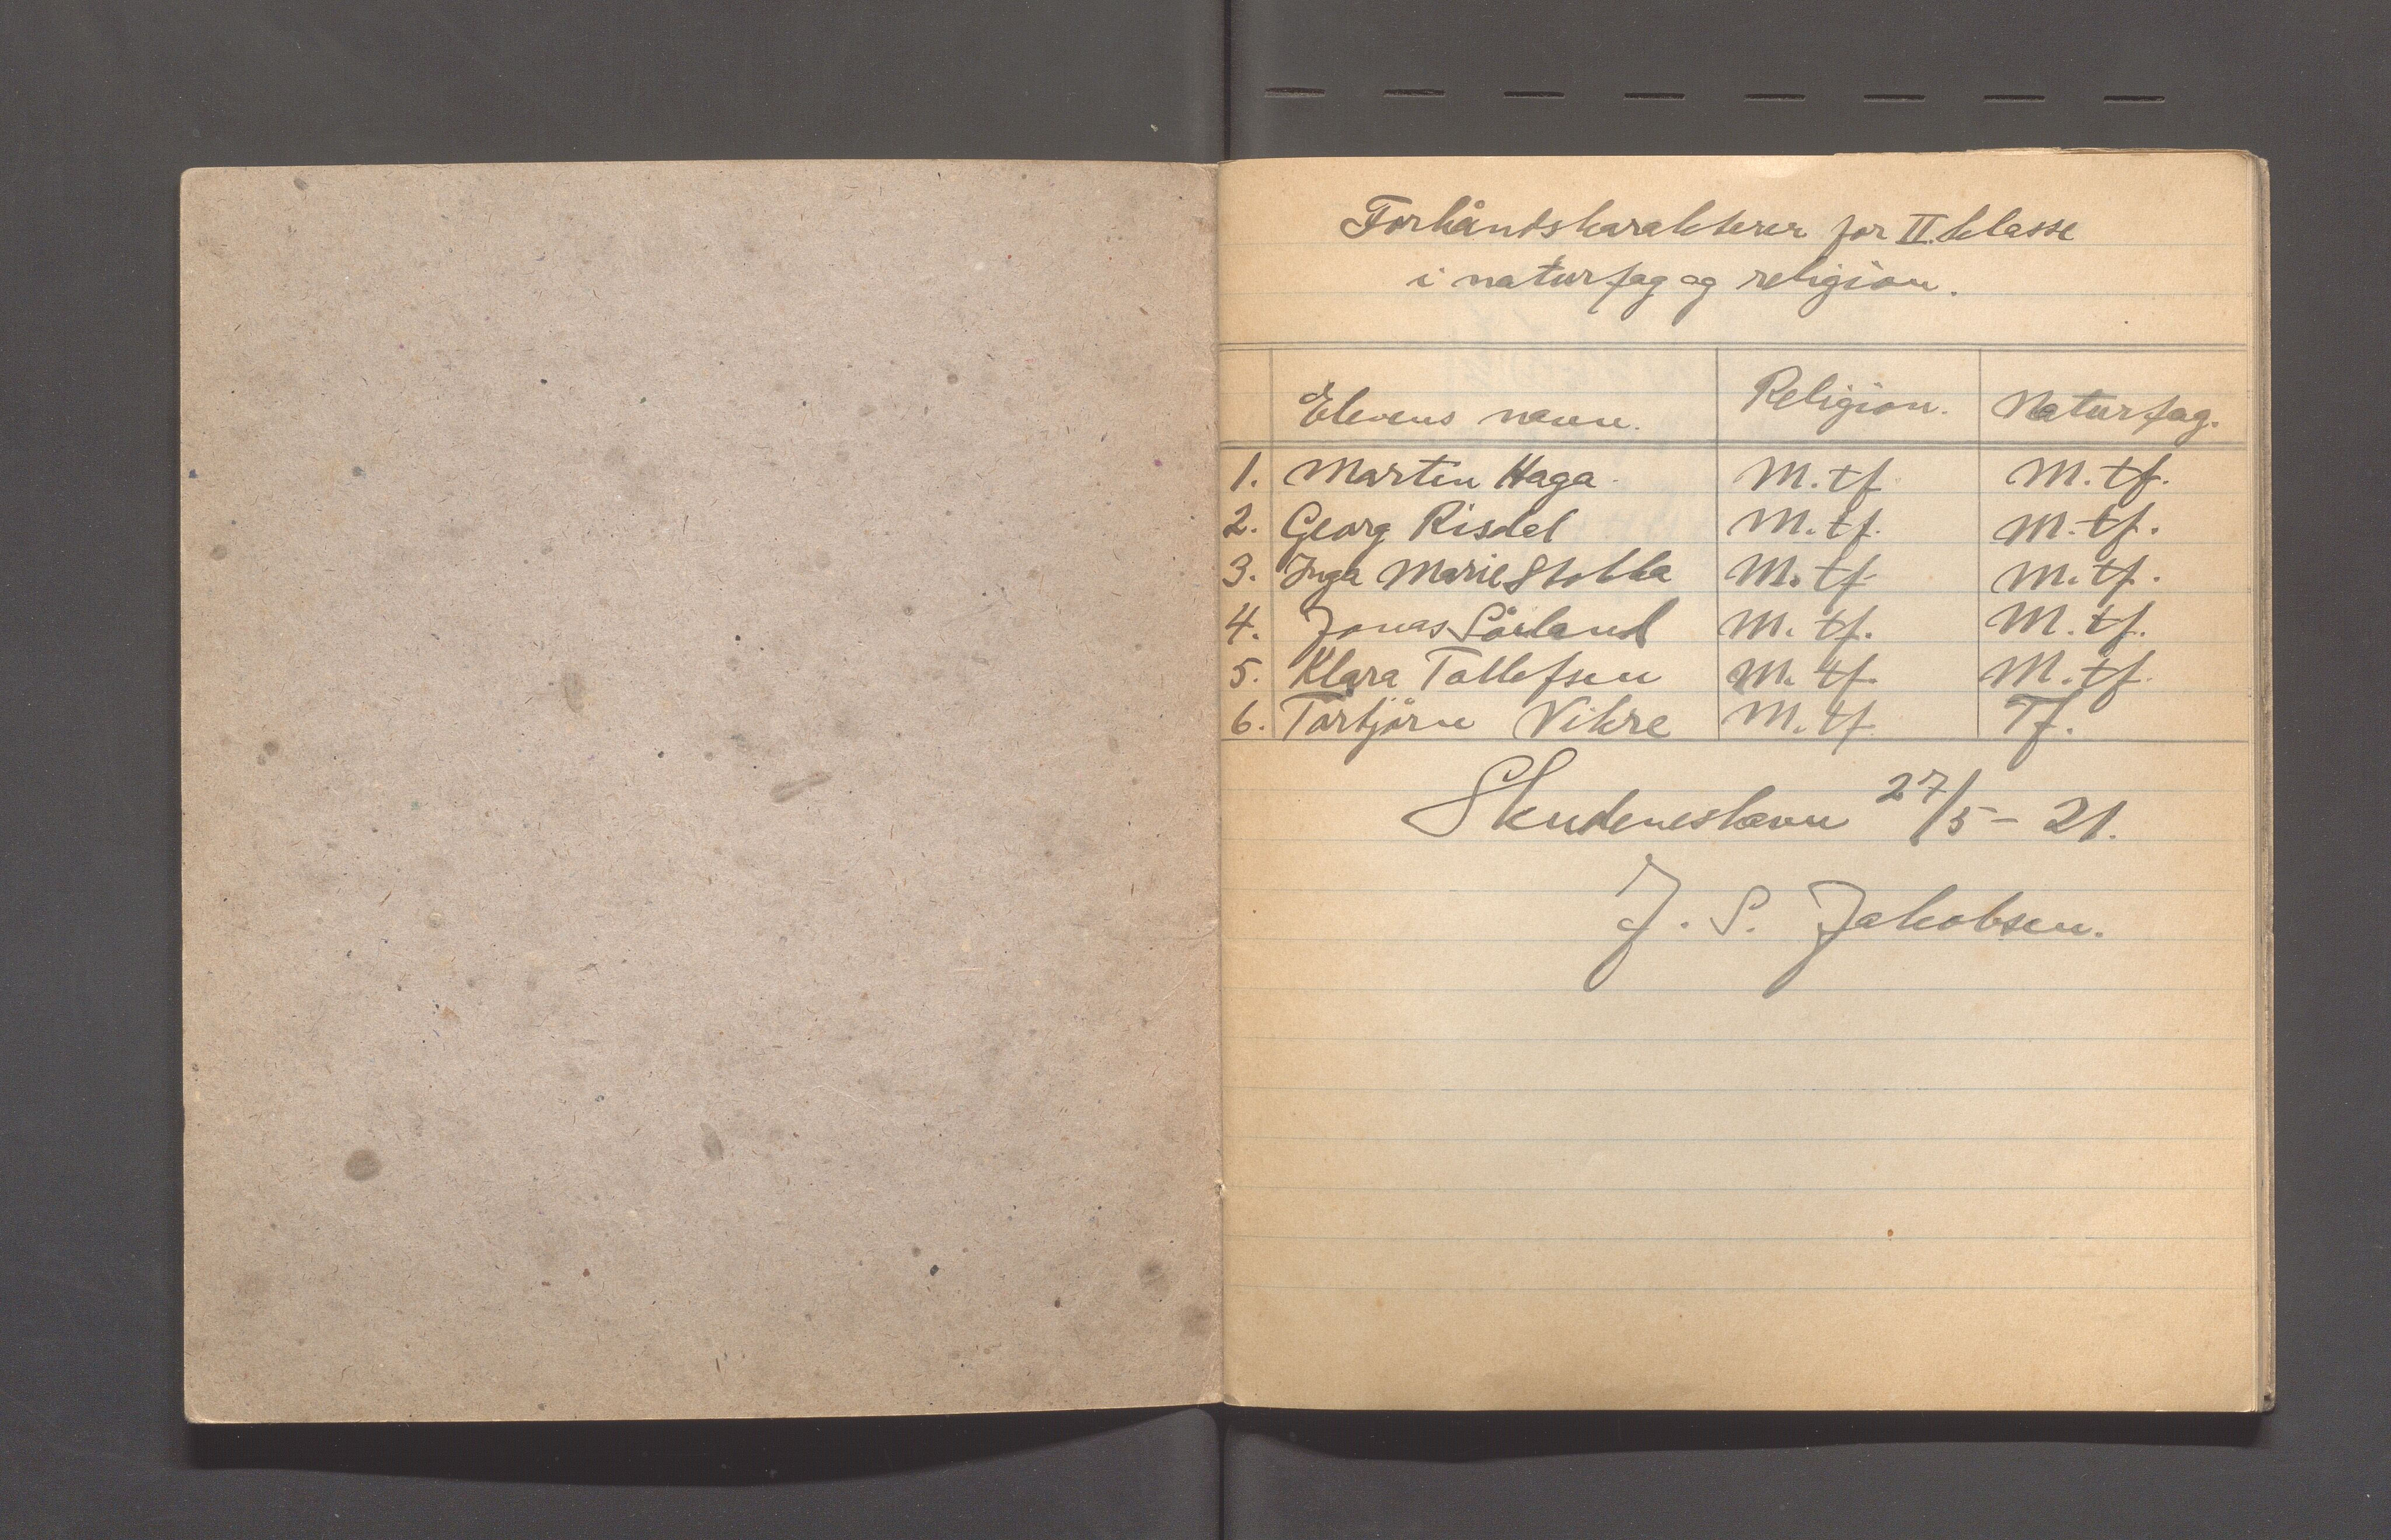 Forhåndskarakterer for II. klasse
i naturfag og religion.
Elevens navn. Religion. Naturfag.
1. Martin Haga M. tf. M. tf.
2. Georg Risdal M. tf. M. tf.
3. Inga Marie Stokka M. tf. M. tf.
4. Jonas Sörland M. tf. M. tf.
5. Klara Tollefsen M. tf. M. tf.
6. Torbjörn Vikre M. tf. Tf.
Skudeneshavn 27/5 - 21.
J. S. Jakobsen.